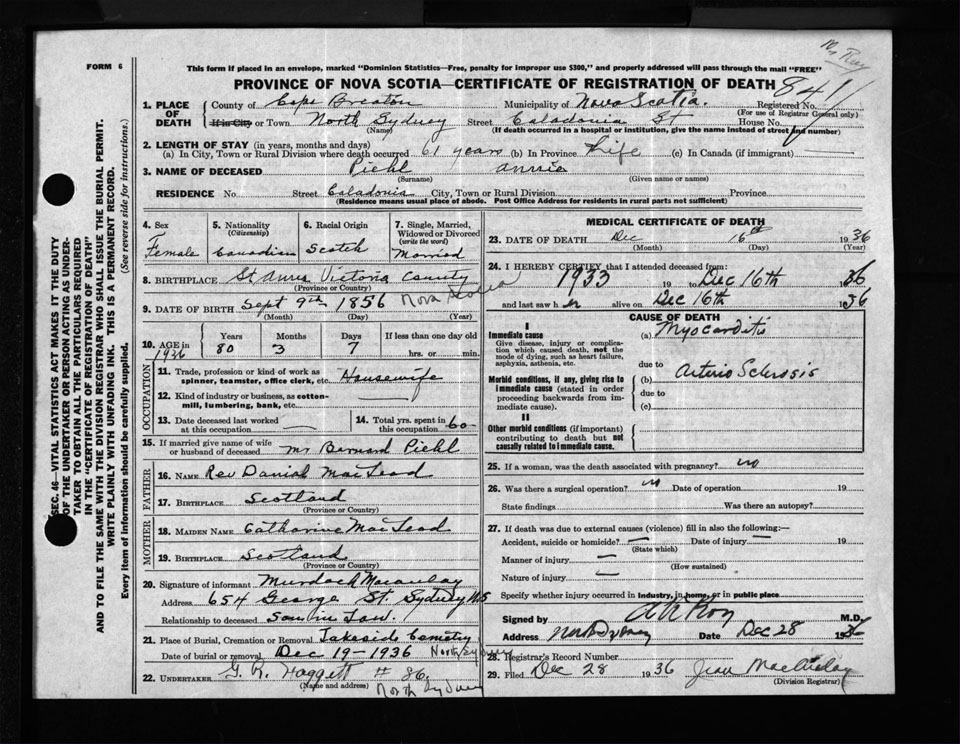 Mr Roy
FORM 6
This form if placed in an envelope, marked "Dominion Statistics—Free, penalty for improper use $300," and properly addressed will pass through the mail "FREE"
PROVINCE OF NOVA SCOTIA—CERTIFICATE OF REGISTRATION OF DEATH
841
1. PLACE OF DEATH County of Cape Breton Municipality of Nova Scotia. Registered No.
(For use of Registrar General only)
If in City or Town North Sydney Street Caladonia St House No.
(Name) (If death occurred in a hospital or institution, give the name instead of street and number)
2. LENGTH OF STAY (in years, months and days)
(a) In City, Town or Rural Division where death occurred 61 years (b) In Province Life (c) In Canada (if immigrant)
3. NAME OF DECEASED Piehl annie
(Surname) (Given name or names)
RESIDENCE No. Street Caladonia City, Town or Rural Division Province
(Residence means usual place of abode. Post Office Address for residents in rural parts not sufficient)
4. Sex
Female
5. Nationality
(Citizenship)
Canadian
6. Racial Origin
Scotch
7. Single, Married, Widowed or Divorced
(write the word)
Married
8. BIRTHPLACE St Anns Victoria County
(Province or Country)
Nova Scotia
9. DATE OF BIRTH Sept 9th 1856
(Month) (Day) (Year)
10. AGE in 1936
Years Months Days If less than one day old
80 3 7 hrs. or min.
OCCUPATION
11. Trade, profession or kind of work as spinner, teamster, office clerk, etc. Housewife
12. Kind of industry or business, as cotton-mill, lumbering, bank, etc.
13. Date deceased last worked at this occupation
14. Total yrs. spent in this occupation 60
15. If married give name of wife or husband of deceased Mr Bernard Piehl
FATHER
16. NAME Rev Daniah MacLeod
17. BIRTHPLACE Scotland
(Province or Country)
MOTHER
18. MAIDEN NAME Catharine MacLeod
19. BIRTHPLACE Scotland
(Province or Country)
20. Signature of informant Murdoch Macaulay
Address 654 George St. Sydney NS
Relationship to deceased Son in Law.
21. Place of Burial, Cremation or Removal Lakeside Cemetry
Date of burial or removal Dec 19-1936 North Sydney
22. UNDERTAKER G. R. Haggett # 86
(Name and address) North Sydney
MEDICAL CERTIFICATE OF DEATH
23. DATE OF DEATH Dec 16th 1936
(Month) (Day) (Year)
24. I HEREBY CERTIFY that I attended deceased from
1933 19 to Dec 16th 1936
and last saw her alive on Dec 16th 1936
CAUSE OF DEATH
I
Immediate cause
Give disease, injury or complication which caused death, not the mode of dying, such as heart failure, asphyxia, asthenia, etc.
(a) Myocarditis
due to
Morbid conditions, if any, giving rise to immediate cause (stated in order proceeding backwards from immediate cause).
(b) Arterio Sclerosis
due to
(c)
II
Other morbid conditions (if important) contributing to death but not causally related to immediate cause.
25. If a woman, was the death associated with pregnancy? no
26. Was there a surgical operation? no Date of operation 19
State findings Was there an autopsy?
27. If death was due to external causes (violence) fill in also the following:—
Accident, suicide or homicide? — Date of injury — 19
(State which)
Manner of injury —
(How sustained)
Nature of injury —
Specify whether injury occurred in industry, in home, or in public place
Signed by M.D.
Address North Sydney Date Dec 28 1936
28. Registrar's Record Number
29. Filed Dec 28 1936 Jean MacAulay
(Division Registrar)
SEC. 46—VITAL STATISTICS ACT MAKES IT THE DUTY
OF THE UNDERTAKER OR PERSON ACTING AS UNDER-
TAKER TO OBTAIN ALL THE PARTICULARS REQUIRED
IN THE "CERTIFICATE OF REGISTRATION OF DEATH"
AND TO FILE THE SAME WITH THE DIVISION REGISTRAR WHO SHALL ISSUE THE BURIAL PERMIT.
WRITE PLAINLY WITH UNFADING INK. THIS IS A PERMANENT RECORD.
Every item of information should be carefully supplied. (See reverse side for instructions.)